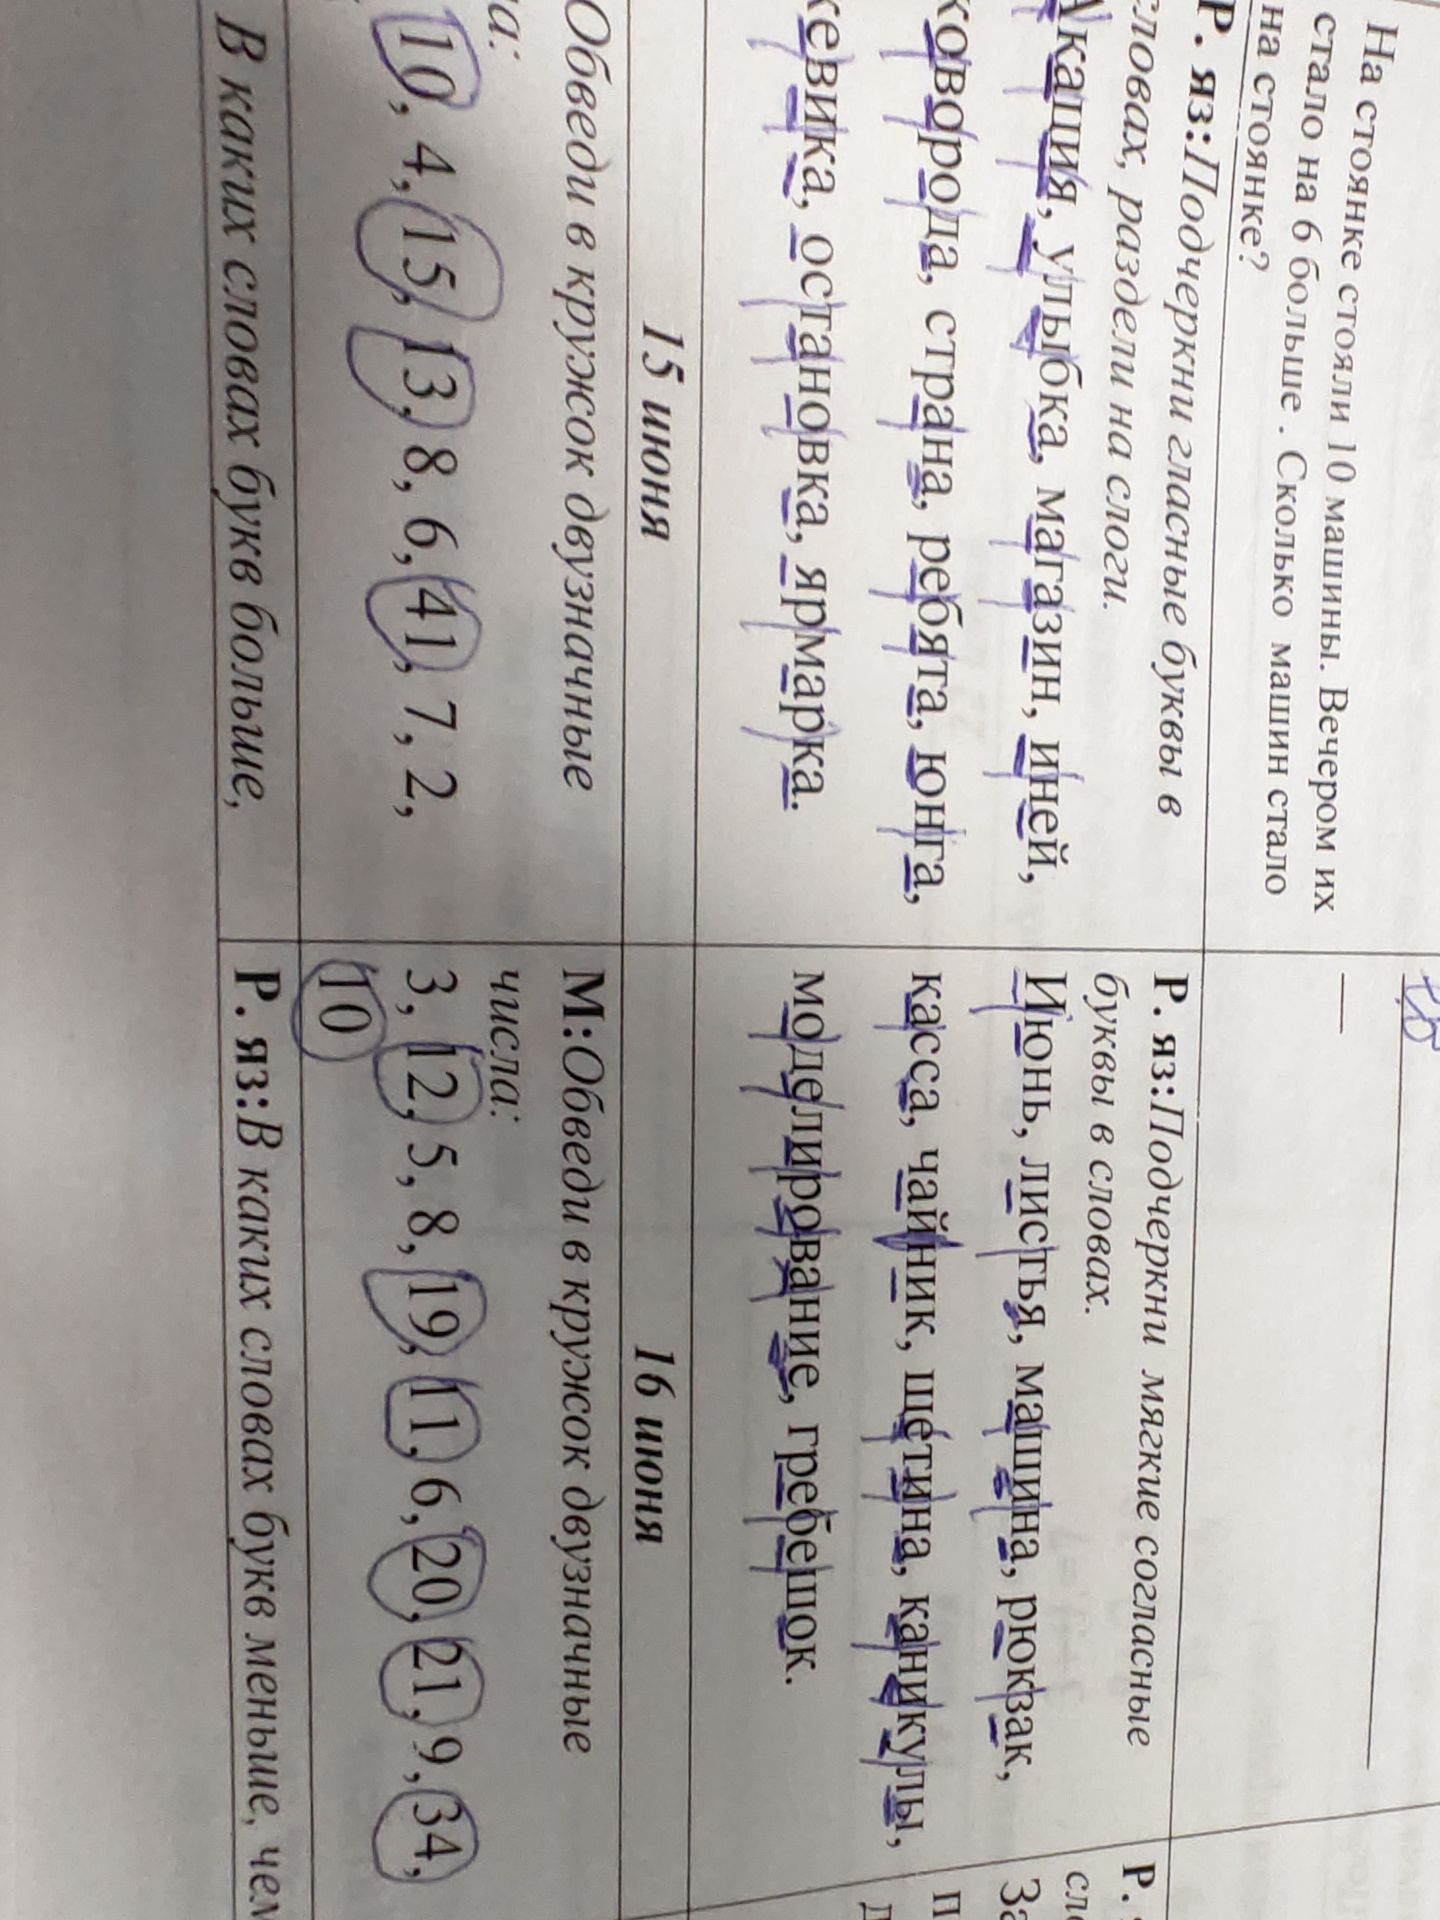 На стоянке стояли 10 машины. Вечером их
стало на 6 больше . Сколько машин стало
на стоянке?
Р. яз:Подчеркни гласные буквы в
словах, раздели на слоги.
Акация, улыбка, магазин, иней,
коворода, страна, ребята, юнга,
кевика, остановка, ярмарка.
Р. яз:Подчеркни мягкие согласные
буквы в словах.
Июнь, листья, машина, рюкзак,
касса, чайник, щетина, каникулы,
моделирование, гребешок.
Р.
сло
За
п
д
15 июня
16 июня
Обведи в кружок двузначные
на:
10, 4, 15, 13, 8, 6, 41, 7, 2,
М:Обведи в кружок двузначные
числа:
3, 12, 5, 8, 19, 11, 6, 20, 21, 9, 34,
10
В каких словах букв больше,
Р. яз:В каких словах букв меньше, чем